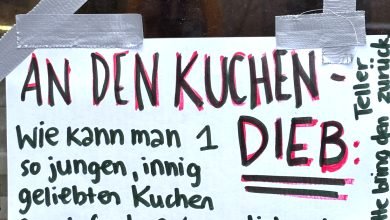 AN DEN KUCHEN-
DIEB:
Wie kann man 1
so jungen, innig
geliebten Kuchen
bring den
Teller
zurück